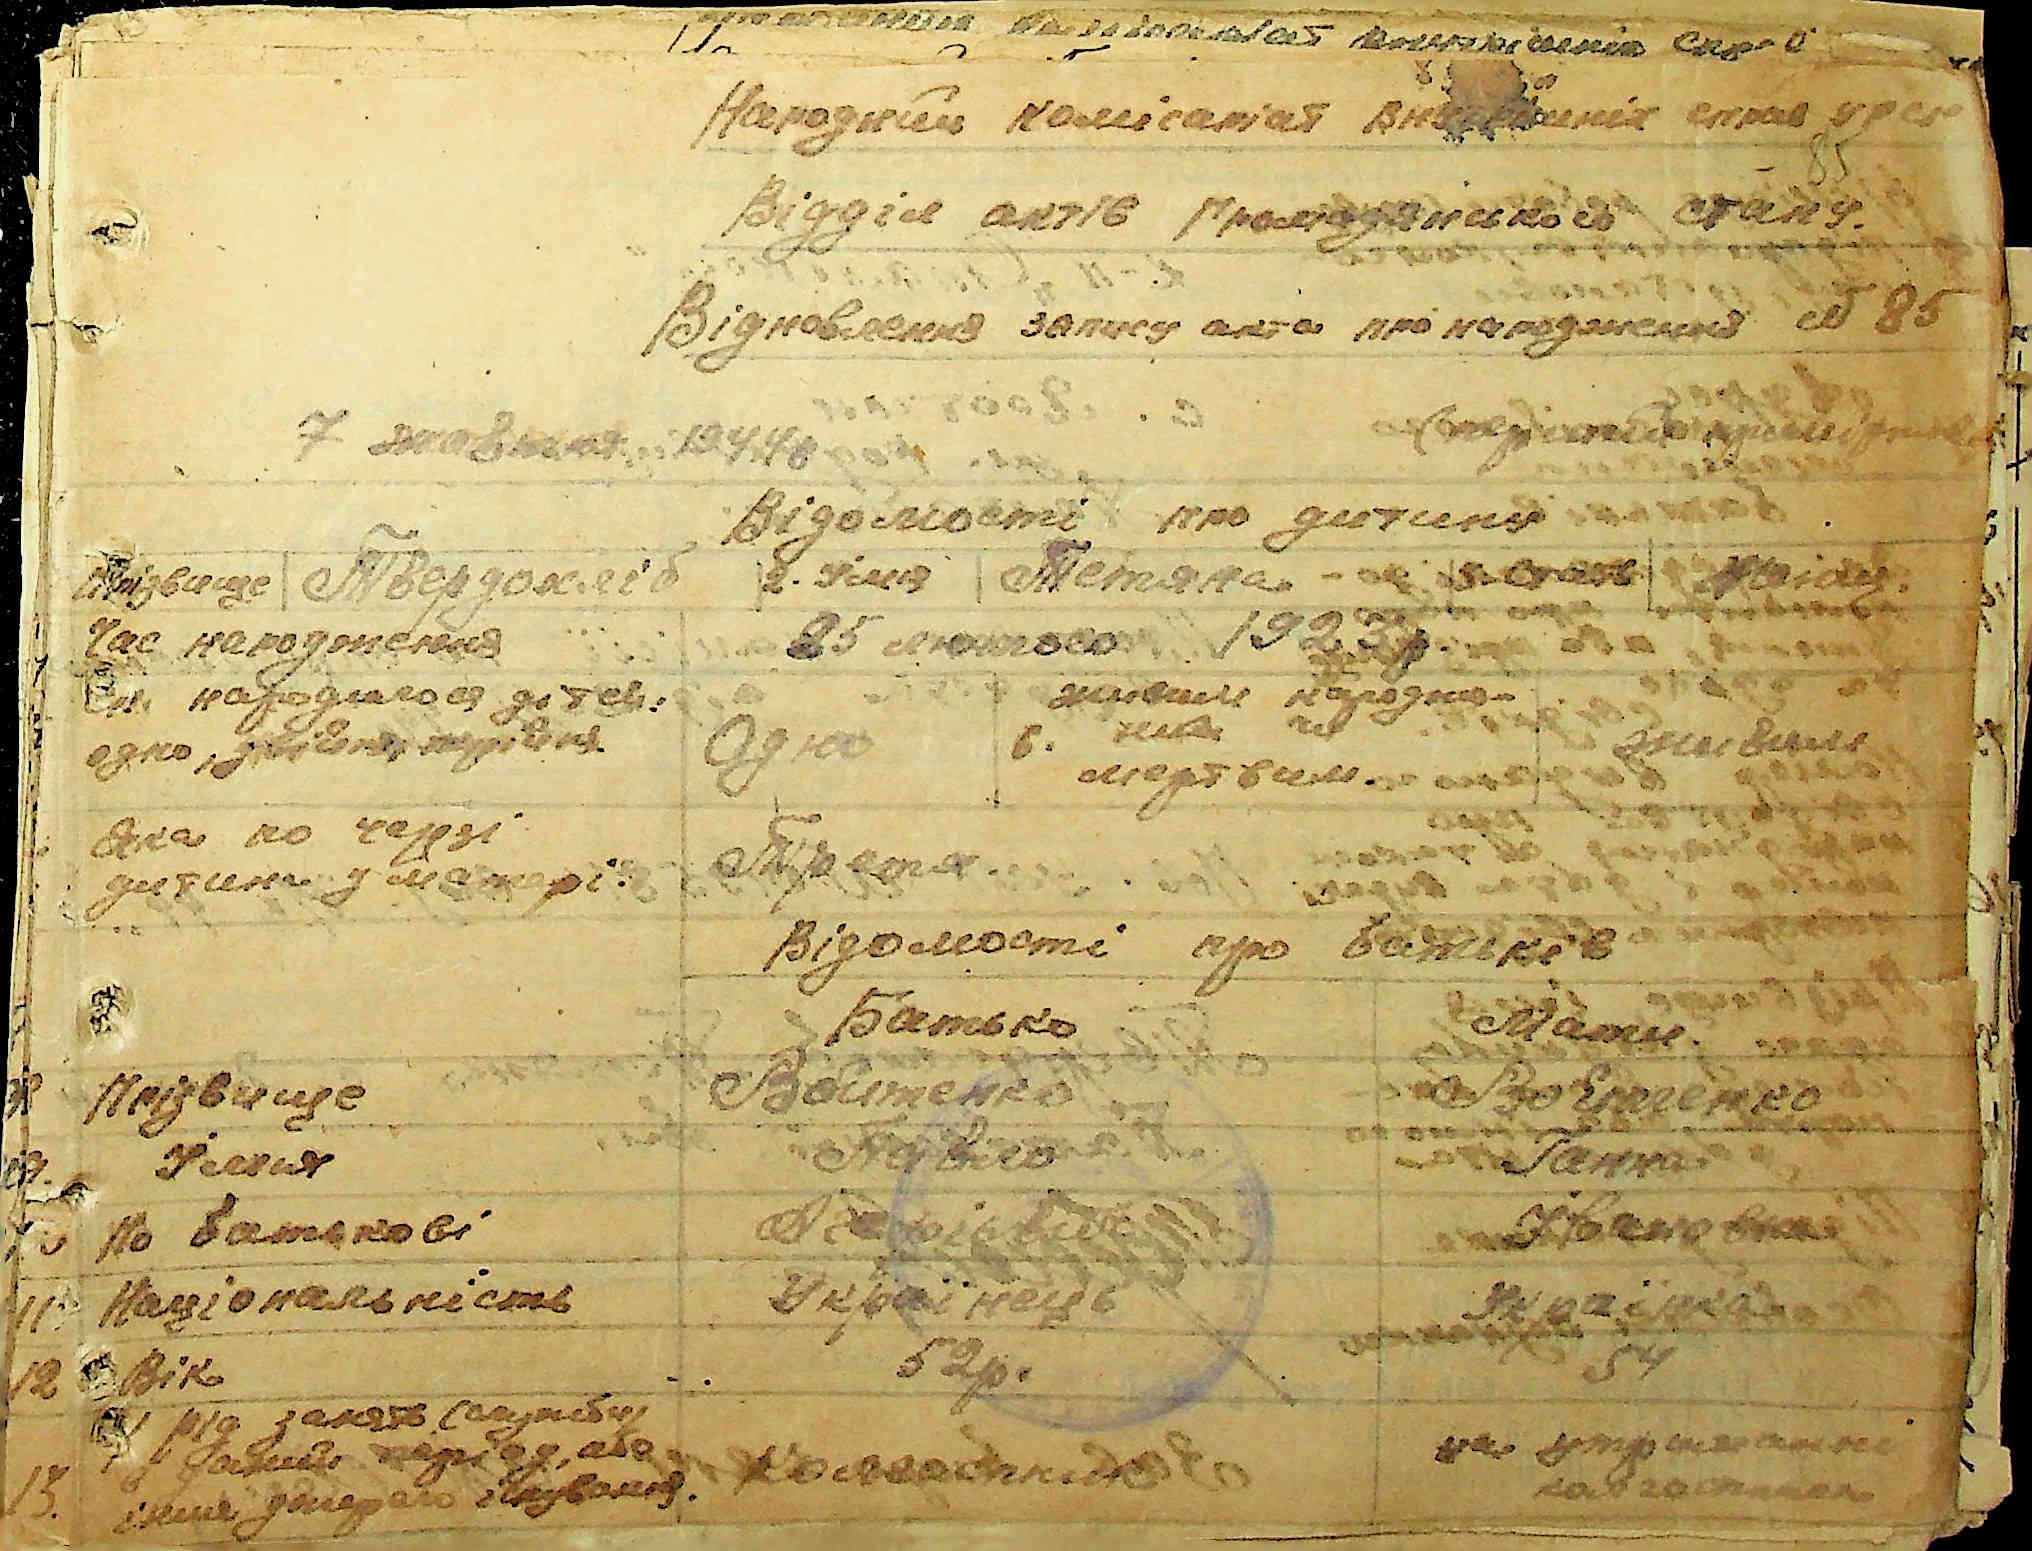 Народний комісаріат внутрішніх справ УРСР
85
Відділ актів Громадянського стану.
Відновлення запису акта про народження № 85
7 жовтня 1944р (перший примірник)
Відомості про дитину
Прізвище Твердохліб 2. Імя Тетяна 3. Стать Жіноч.
Час народження 25 лютого 1923 р.
народилося дітей: живим народже-
одно, двійня, трійня. Одно 6. на чи живим
мертвим.
Яка по черзі
дитина у матері: Третя.
Відомості про батьків
Батько Мати.
Прізвище Войтенко Войтенко
9. Імя Павло Ганна
10 По батькові Івановна
11 Національність Українець Українка
12 Вік 52р. 54
Рід занять (службу)
або Колгоспник на утриманні
13. інше джерело існування. колгоспника